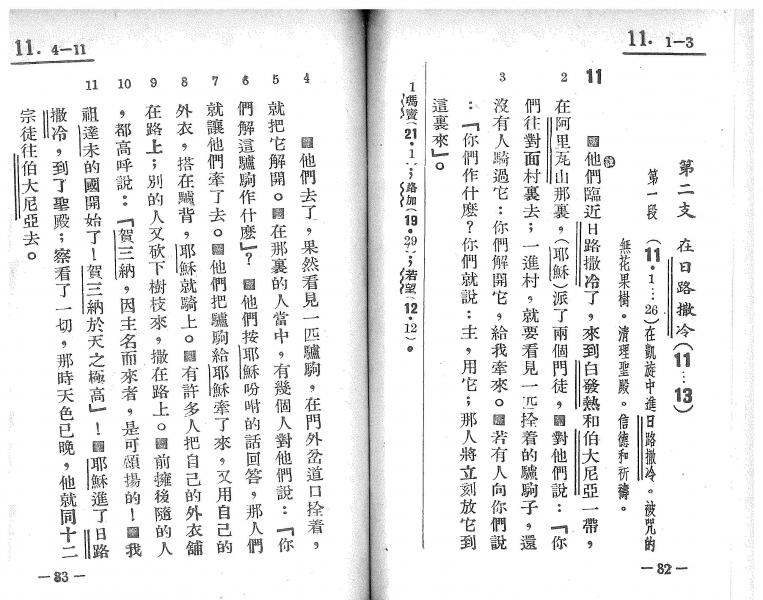 11. 1—3
第二支　在日路撒冷(11…13)
第一段　(11·1…26)在凱旋中進日路撒冷。被咒的
無花果樹。清理聖殿。信德和祈禱。
11　他們臨近日路撒冷了，來到白發熱和伯大尼亞一帶，
2　在阿里瓦山那裏，(耶穌)派了兩個門徒，對他們說：「你
們往對面村裏去；一進村，就要看見一匹拴着的驢駒子，還
3　沒有人騎過它：你們解開它，給我牽來。若有人向你們說
：「你們作什麽？你們就說：主，用它；那人將立刻放它到
這裏來」。
1 瑪竇(21·1…；路加(19·29)；若望(12·12)。
—82—
11. 4—11
4　他們去了，果然看見一匹驢駒，在門外岔道口拴着，
5　就把它解開。在那裏的人當中，有幾個人對他們說：「你
6　們解這驢駒作什麽」？他們按耶穌吩咐的話回答，那人們
7　就讓他們牽了去。他們把驢駒給耶穌牽了來，又用自己的
8　外衣，搭在驢背，耶穌就騎上。有許多人把自己的外衣舖
9　在路上；別的人又砍下樹枝來，撒在路上。前擁後隨的人
10　，都高呼說：「賀三納，因主名而來者，是可頌揚的！我
11　祖達未的國開始了！賀三納於天之極高」！耶穌進了日路
撒冷，到了聖殿；察看了一切，那時天色已晚，他就同十二
宗徒往伯大尼亞去。
—83—